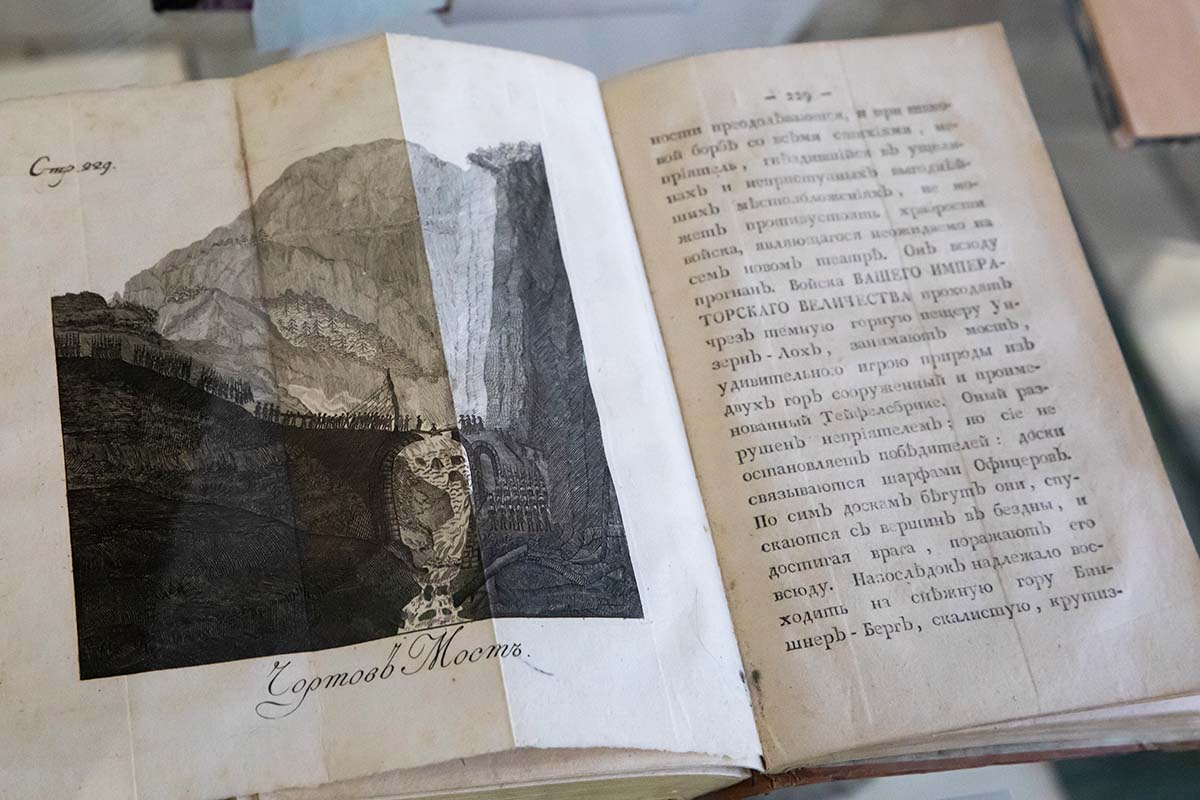 Стр. 229.
Чортовъ Мостъ.
— 229 —
ности преодолѣваются, и при тако-
вой борбѣ со всѣми стихіями, не-
пріятель, гнѣздившійся въ ущели-
нахъ и неприступныхъ выгоднѣй-
шихъ мѣстоположеніяхъ, не мо-
жетъ противустоять храбрости
войска, являющагося неожидаемо на
семъ новомъ театрѣ. Онъ всюду
прогнанъ. Войска ВАШЕГО ИМПЕРА-
ТОРСКАГО ВЕЛИЧЕСТВА проходятъ
чрезъ темную горную пещеру Ун-
зернъ-Лохъ, занимаютъ мостъ,
удивительною игрою природы изъ
двухъ горъ сооруженный и проиме-
нованный Тейфелсбрике. Оный раз-
рушенъ непріятелемъ; но сіе не
остановляетъ побѣдителей: доски
связываются шарфами Офицеровъ.
По симъ доскамъ бѣгутъ они, спу-
скаются съ вершинъ въ бездны, и
достигая врага, поражаютъ его
всюду. Напослѣдокъ надлежало вос-
ходить на снѣжную гору Бин-
шнеръ-Бергъ, скалистую, крутиз-